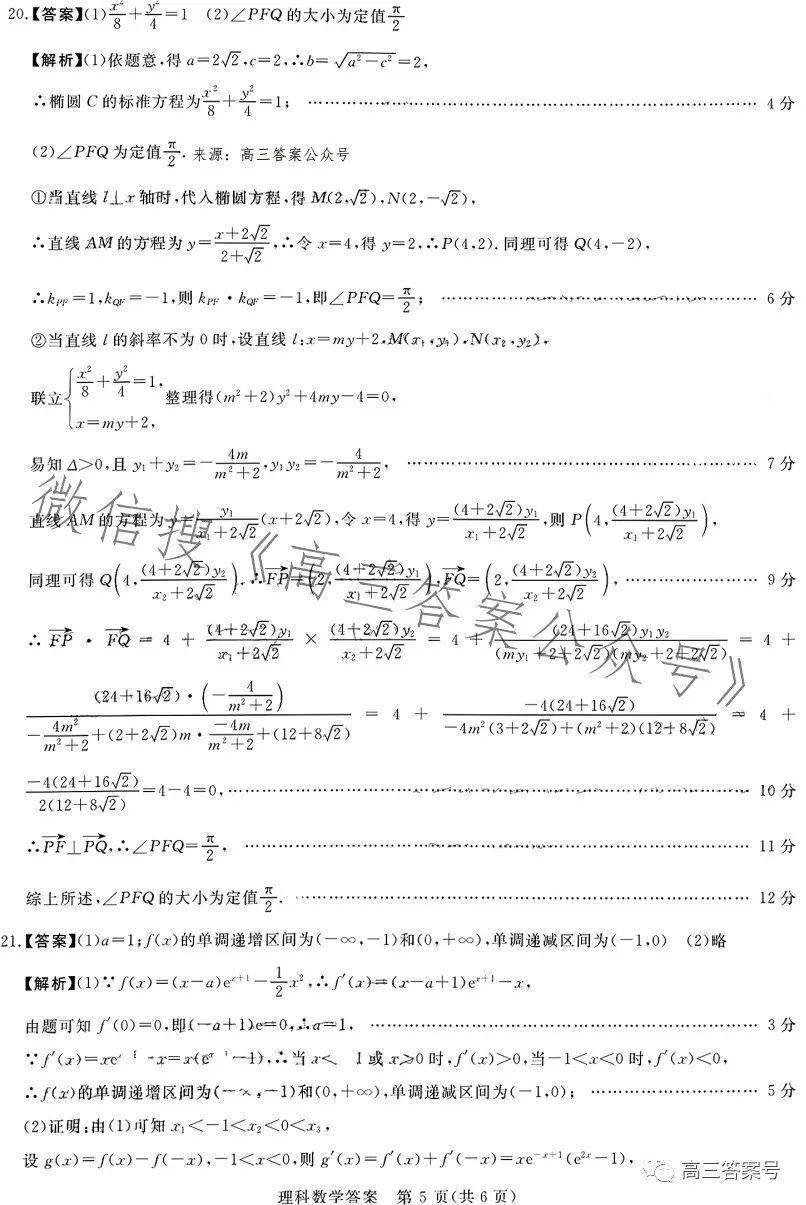 20.【答案】(1)x²/8+y²/4=1 (2)∠PFQ的大小为定值π/2
【解析】(1)依题意,得a=2√2,c=2,∴b=√(a²-c²)=2,
∴椭圆C的标准方程为x²/8+y²/4=1; …… 4分
(2)∠PFQ为定值π/2. 来源:高三答案公众号
①当直线l⊥x轴时,代入椭圆方程,得M(2,√2),N(2,-√2),
∴直线AM的方程为y=(x+2√2)/(2+√2),∴令x=4,得y=2,∴P(4,2).同理可得Q(4,-2),
∴k_PF=1,k_QF=-1,则k_PF·k_QF=-1,即∠PFQ=π/2; …… 6分
②当直线l的斜率不为0时,设直线l:x=my+2,M(x₁,y₁),N(x₂,y₂),
联立{x²/8+y²/4=1, x=my+2, 整理得(m²+2)y²+4my-4=0,
易知Δ>0,且y₁+y₂=-4m/(m²+2),y₁y₂=-4/(m²+2), …… 7分
直线AM的方程为y=y₁/(x₁+2√2)(x+2√2),令x=4,得y=(4+2√2)y₁/(x₁+2√2),则P(4,(4+2√2)y₁/(x₁+2√2)),
同理可得Q(4,(4+2√2)y₂/(x₂+2√2)).∴FP→=(2,(4+2√2)y₁/(x₁+2√2)),FQ→=(2,(4+2√2)y₂/(x₂+2√2)), …… 9分
∴FP→·FQ→=4+(4+2√2)y₁/(x₁+2√2)×(4+2√2)y₂/(x₂+2√2)=4+(24+16√2)y₁y₂/((my₁+2+2√2)(my₂+2+2√2))=4+
(24+16√2)·(-4/(m²+2))/(-4m²/(m²+2)+(2+2√2)m·(-4m)/(m²+2)+(12+8√2))=4+-4(24+16√2)/(-4m²(3+2√2)+(m²+2)(12+8√2))=4+
-4(24+16√2)/(2(12+8√2))=4-4=0, …… 10分
∴PF→⊥PQ→,∴∠PFQ=π/2, …… 11分
综上所述,∠PFQ的大小为定值π/2. …… 12分
21.【答案】(1)a=1;f(x)的单调递增区间为(-∞,-1)和(0,+∞),单调递减区间为(-1,0) (2)略
【解析】(1)∵f(x)=(x-a)eˣ⁺¹-1/2x²,∴f′(x)=(x-a+1)eˣ⁺¹-x,
由题可知f′(0)=0,即(-a+1)e=0,∴a=1, …… 3分
∵f′(x)=xe -x=x(e -1),∴当x< 1或x>0时,f′(x)>0,当-1<x<0时,f′(x)<0,
∴f(x)的单调递增区间为(-∞,-1)和(0,+∞),单调递减区间为(-1,0); …… 5分
(2)证明:由(1)可知x₁<-1<x₂<0<x₃,
设g(x)=f(x)-f(-x),-1<x<0,则g′(x)=f′(x)+f′(-x)=xe⁻ˣ⁺¹(e²ˣ-1),
微信搜《高三答案公众号》
高三答案号
理科数学答案 第5页(共6页)